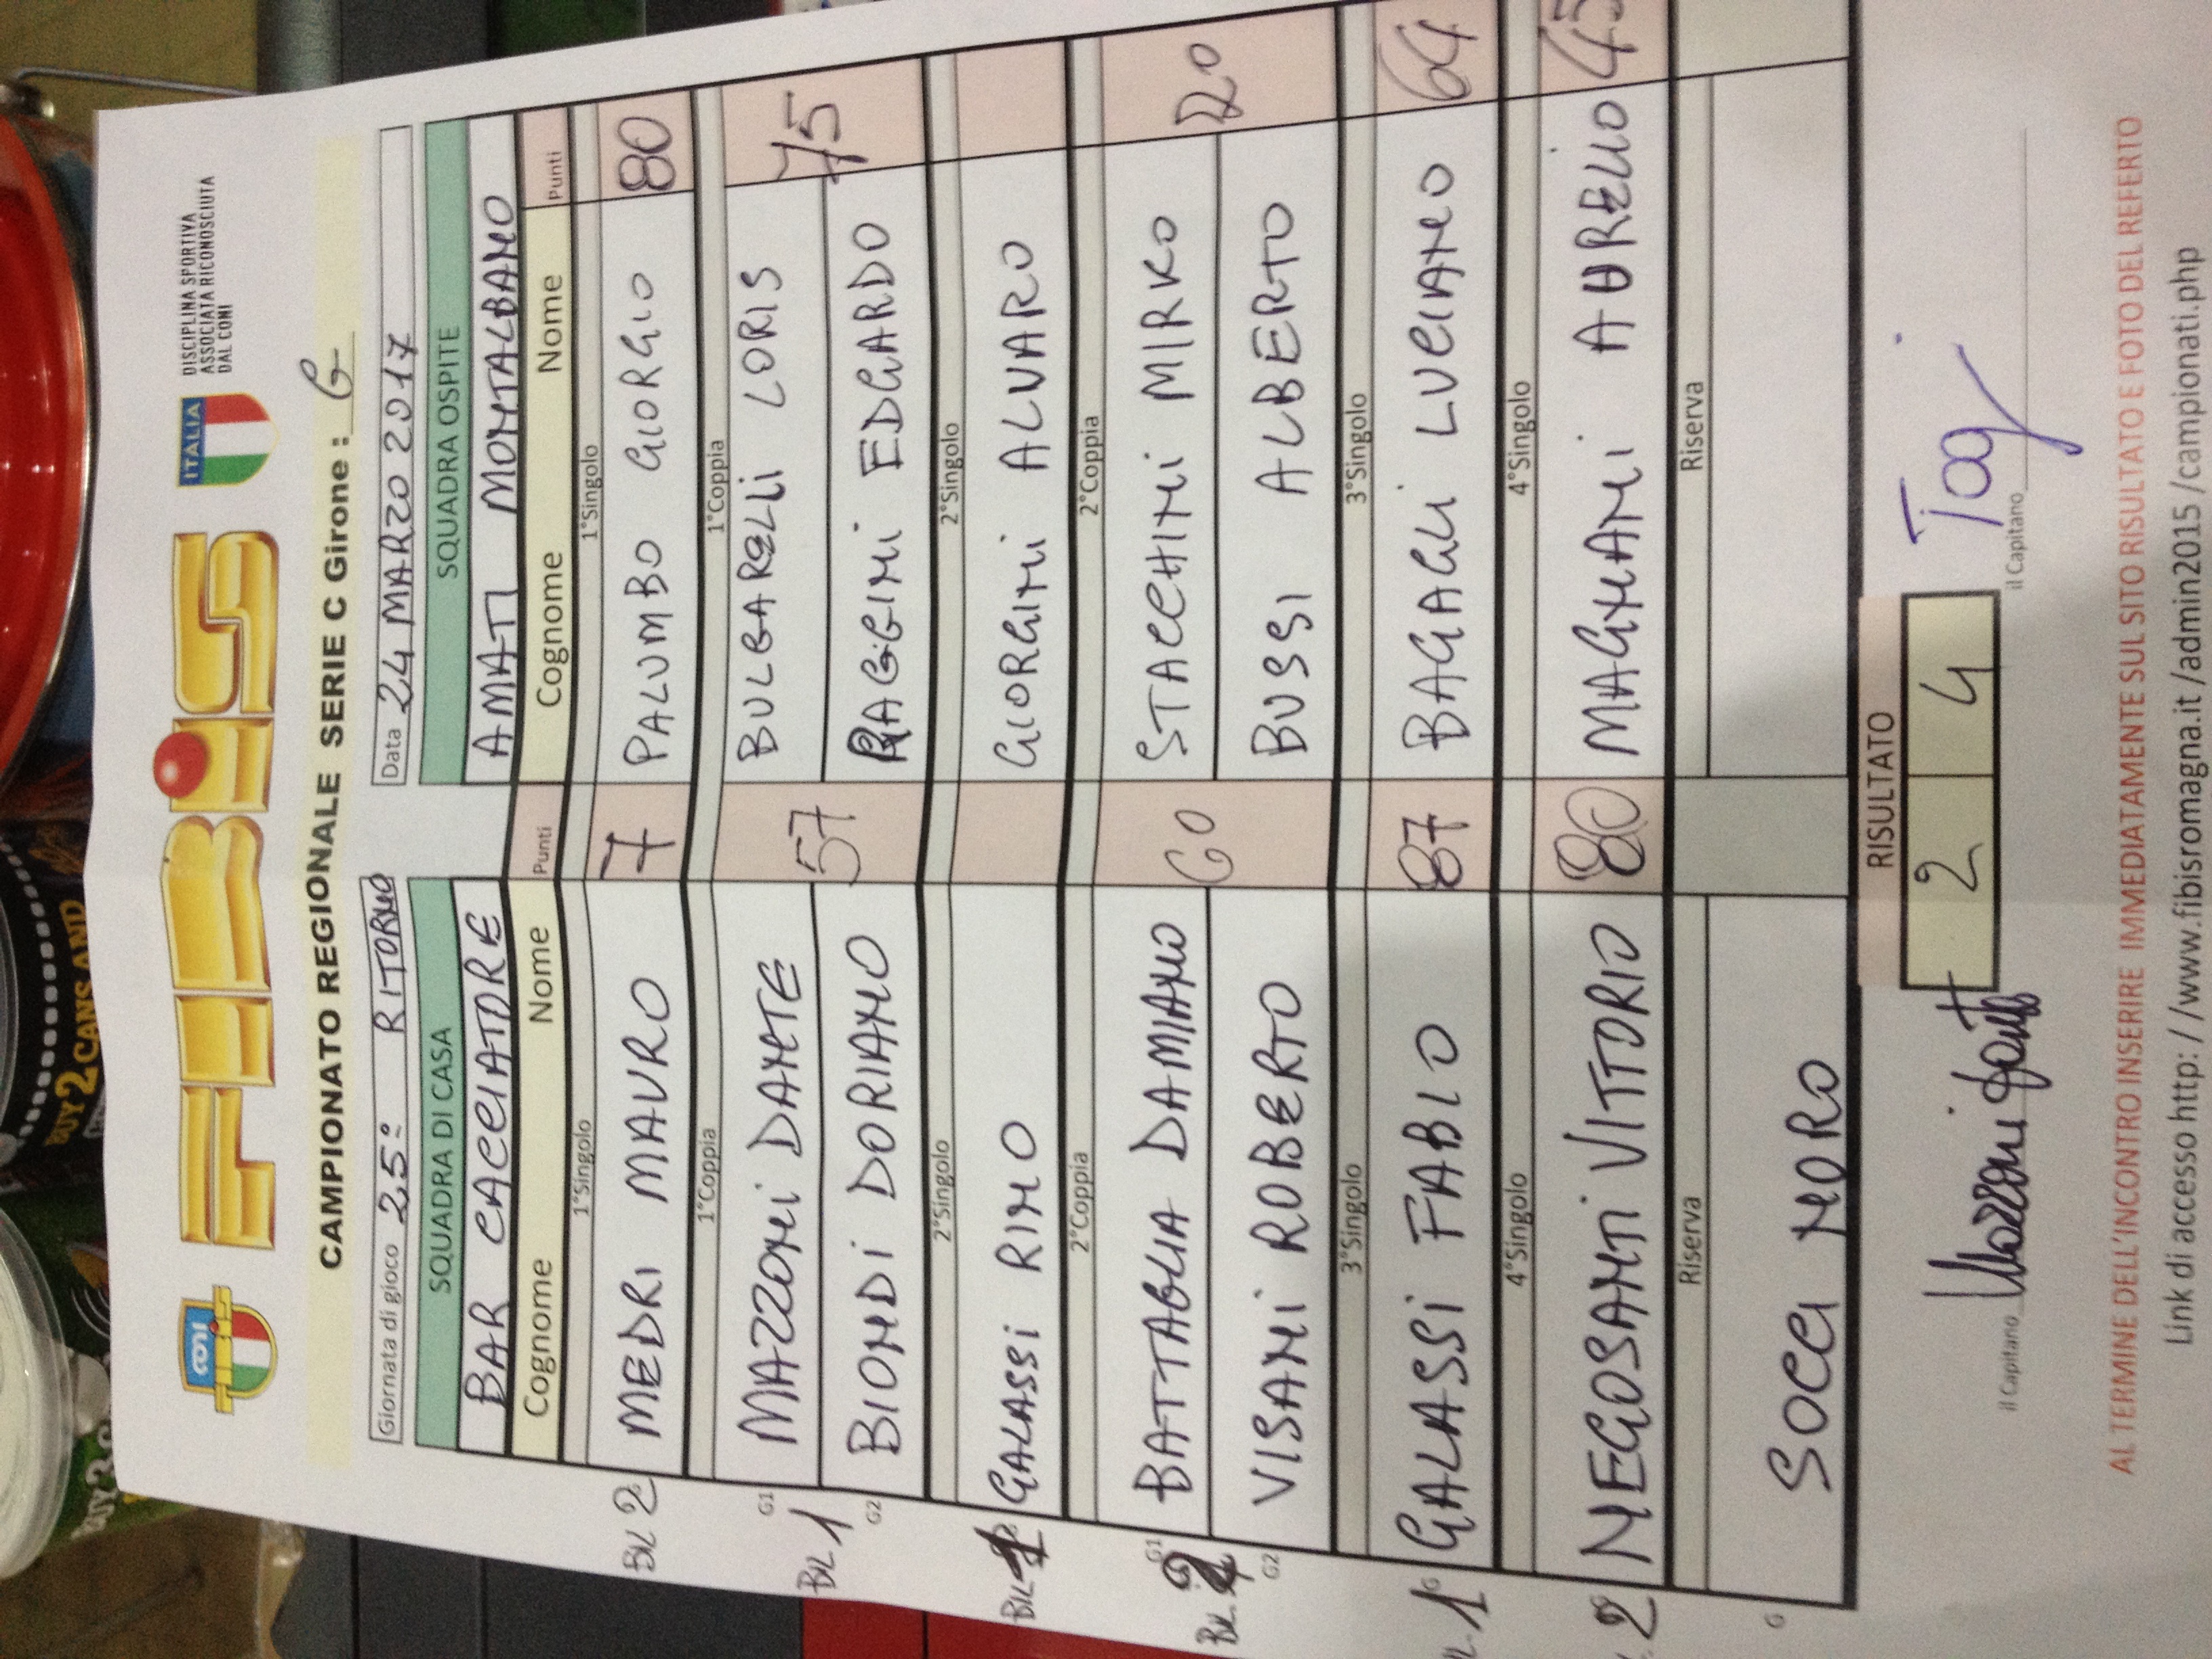 FIBiS
CONI
ITALIA
DISCIPLINA SPORTIVA
ASSOCIATA RICONOSCIUTA
DAL CONI
CAMPIONATO REGIONALE SERIE C Girone : G
Giornata di gioco 25° RITORNO Data 24 MARZO 2017
SQUADRA DI CASA SQUADRA OSPITE
BAR CACCIATORE AMATI MONTALBANO
Cognome Nome Punti Cognome Nome Punti
1°Singolo 1°Singolo
BIL 2 MEDRI MAURO 7 PALUMBO GIORGIO 80
1°Coppia 1°Coppia
G1 MAZZONI DANTE 57 BULGARELLI LORIS 75
BIL 1
G2 BIONDI DORIANO RAGGINI EDGARDO
2°Singolo 2°Singolo
GALASSI RINO GIORGINI ALVARO
2°Coppia 2°Coppia
G1 BATTAGLIA DAMIANO 60 STACCHINI MIRKO
G2 VISANI ROBERTO BUSSI ALBERTO
3°Singolo 3°Singolo
1 GALASSI FABIO 87 BAGAGLI LUCIANO 64
4°Singolo 4°Singolo
2 NEGOSANTI VITTORIO 80 MAGNANI AURELIO 45
Riserva Riserva
G SOCCI NORO
RISULTATO
2 4
il Capitano Mazzoni Dante il Capitano
AL TERMINE DELL'INCONTRO INSERIRE IMMEDIATAMENTE SUL SITO RISULTATO E FOTO DEL REFERTO
Link di accesso http: / /www.fibisromagna.it /admin2015 /campionati.php
BUY 2 CANS AND